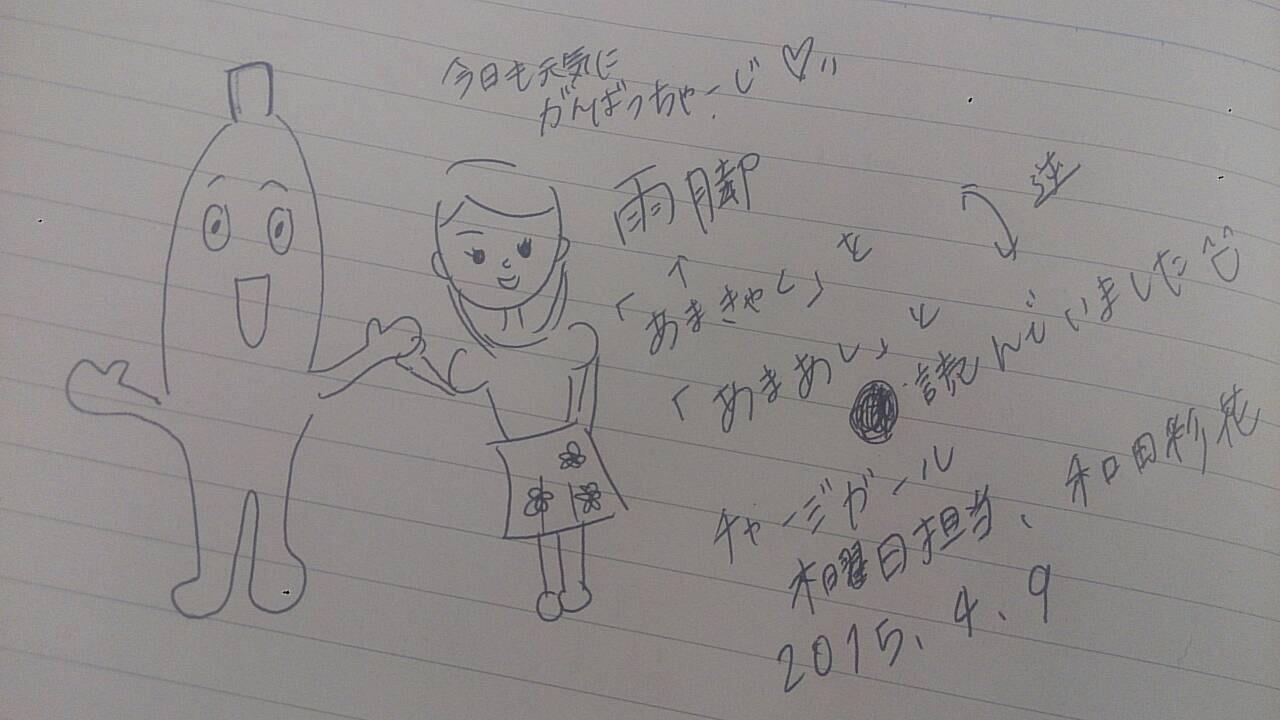 今日も元気に
がんばっちゃーじ♡
雨脚
逆
↑
「あまきゃく」を
「あまあし」と
読んでいました
チャージガール
木曜日担当、和田彩花
2015.4.9